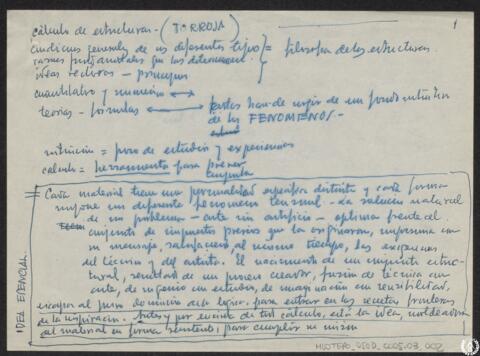 1
cálculo de estructuras - (TORROJA)
condiciones generales de los diferentes tipos
razones fundamentales que los determinan } = filosofía de las estructuras
ideas rectoras - principios
cuantitativo y numérico ↔
teorías - formulas ↔ partes han de surgir de un fondo intuitivo
de los FENOMENOS -
intuición = poso de estudios y experiencias
calculo = herramienta para prever
= Cada material tiene una personalidad específica distinta y cada forma
impone un diferente fenomeno tensional - La solucion natural
de un problema - arte sin artificio - optima frente al
conjunto de impuestos previos que la originaron, impresiona con
su mensaje, satisfaciendo, al mismo tiempo, las exigencias
del técnico y del artista. El nacimiento de un conjunto estruc-
tural, resultado de un proceso creador, fusion de técnica con
arte, de ingenio con estudio, de imaginación con sensibilidad,
escapa al puro dominio de la lógica para entrar en las secretas fronteras
de la inspiración. Antes y por encima de todo cálculo, está la idea, moldeadora
del material en forma resistente, para cumplir su misión
IDEA ESENCIAL